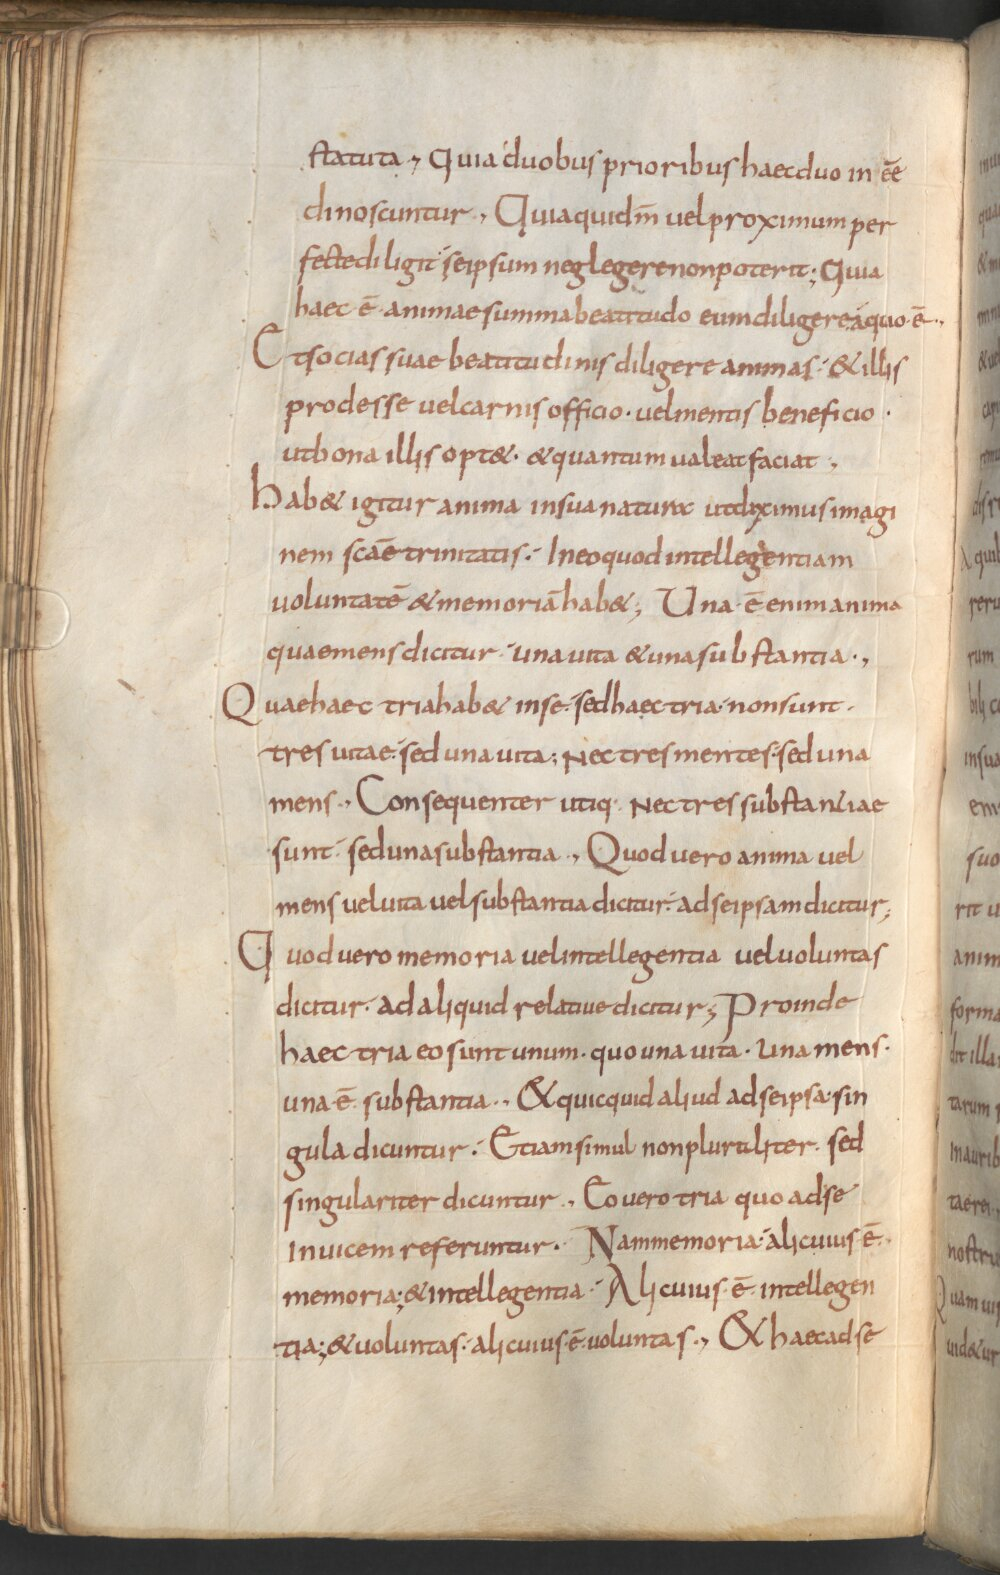 statuta ., Quia duobus prioribus haec duo in ēē
dinoscuntur ., Quia quidm̄ vel proximum per
fecte diligit · seipsum neglegere non poterit ; Quia
haec ē · animae summa beatitudo eum diligere a quo · ē .,
Et socias suae beatitudinis diligere animas · & illis
prodesse vel carnis officio · vel mentis beneficio ·
ut bona illis opt& · & quantum valeat faciat .,
Hab& igitur anima in sua natura ut diximus imagi
nem scāe trinitatis · In eo quod intellegentiam
voluntatē & memoriā hab& ; Una · ē enim anima
quae mens dicitur · una vita & una substantia .,
Quae haec tria hab& in se · sed haec tria · non sunt ·
tres vitae · sed una vita ; Nec tres mentes · sed una
mens ., Consequenter utiq · Nec tres substantiae
sunt · sed una substantia ., Quod vero anima vel
mens vel vita vel substantia dicitur · ad seipsam dicitur ;
Quod vero memoria vel intellegentia vel voluntas
dicitur · ad aliquid relative dicitur ; Proinde
haec tria eo sunt unum · quo una vita · una mens ·
una · ē · substantia ., & quicquid aliud ad se ipsa · sin
gula dicuntur · Etiam simul non pluraliter · sed
singulariter dicuntur ., Eo vero tria quo ad se
invicem referuntur · Nam memoria · alicuius · ē ·
memoria ; & intellegentia · Alicuius · ē · intellegen
tia ; & voluntas · alicuius · ē · voluntas ., & haec ad se